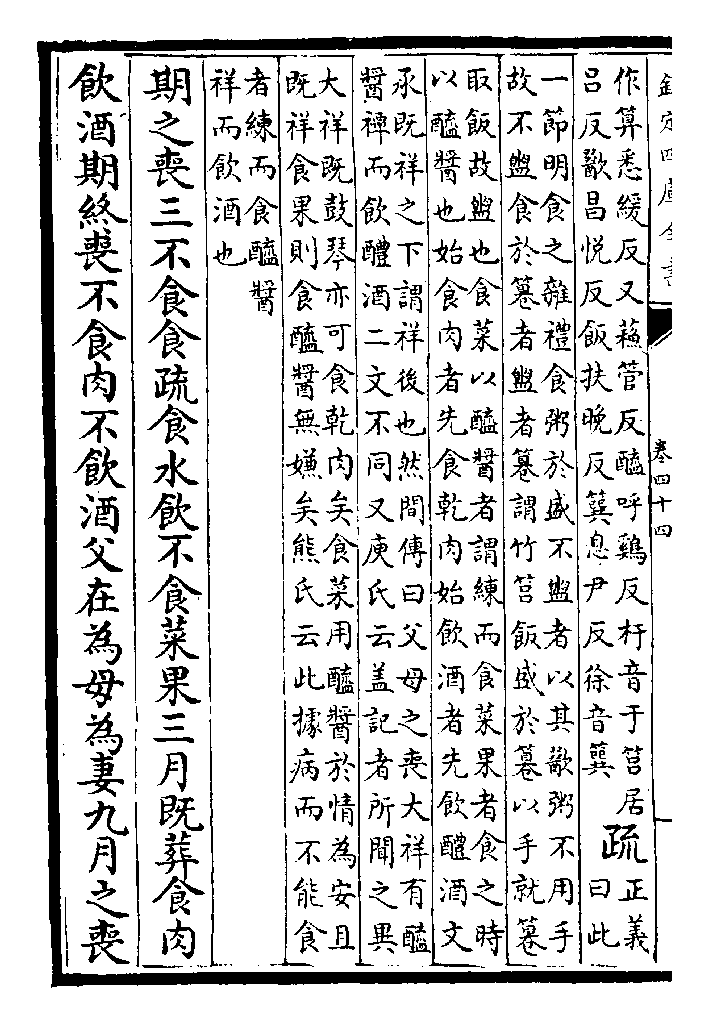 欽定四庫全書 卷四十四
作算悉緩反又蘓管反醯呼鷄反杅音于筥居
吕反歠昌悦反飯扶晚反簨息尹反徐音簨
疏
正義
曰此
一節明食之雜禮食粥於盛不盥者以其歠粥不用手
故不盥食於篹者盥者篹謂竹筥飯盛於篹以手就篹
取飯故盥也食菜以醯醬者謂練而食菜果者食之時
以醯醬也始食肉者先食乾肉始飲酒者先飲醴酒文
承既祥之下謂祥後也然間傳曰父母之喪大祥有醯
醬禫而飲醴酒二文不同又庾氏云盖記者所聞之異
大祥既鼓琴亦可食乾肉矣食菜用醯醬於情為安且
既祥食果則食醯醬無嫌矣熊氏云此據病而不能食
者練而食醯醬
祥而飲酒也
期之喪三不食食疏食水飲不食菜果三月既葬食肉
飲酒期終喪不食肉不飲酒父在為母為妻九月之喪